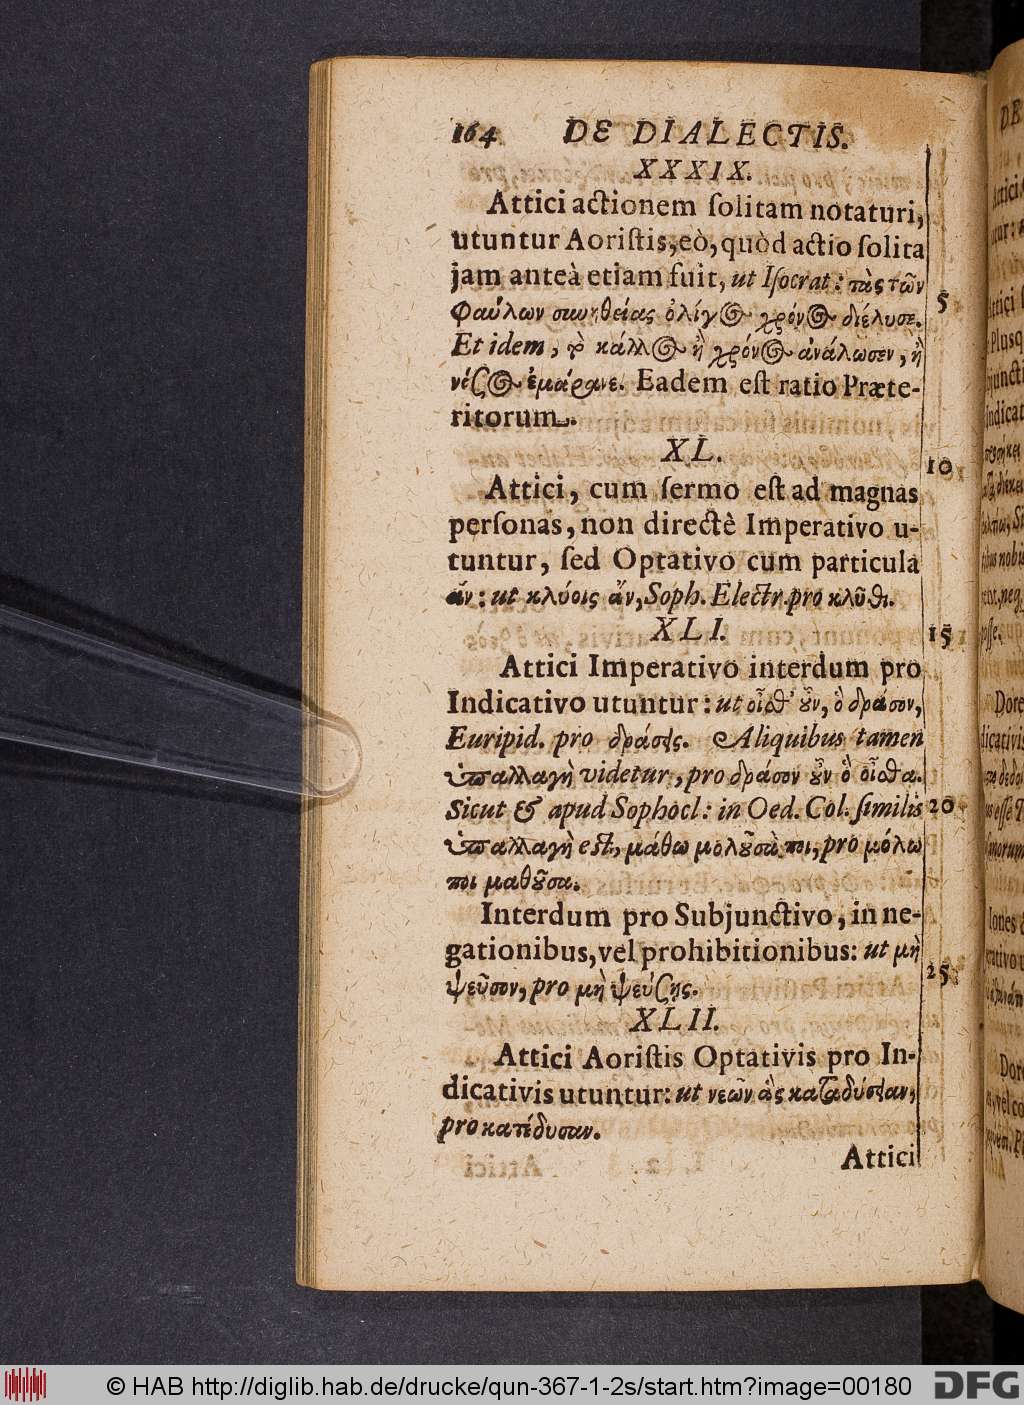 164 DE DIALECTIS.
XXXIX.
Attici actionem ſolitam notaturi,
utuntur Aoriſtis, eò, quòd actio ſolita
jam anteà etiam fuit, ut Iſocrat: τὰς τῶν
φαύλων συνηθείας ὀλίγος χρόνος διέλυσε.
Et idem, κάλλος ἢ χρόνος ἀνάλωσεν, ἢ
νόσος ἐμάρανε. Eadem eſt ratio Præte-
ritorum.
XL.
Attici, cum ſermo eſt ad magnas
perſonas, non directè Imperativo u-
tuntur, ſed Optativo cum particula
ἄν: ut κλύοις ἄν, Soph. Electr. pro κλῦθι.
XLI.
Attici Imperativo interdum pro
Indicativo utuntur: ut οἶσθ' οὖν, ὃ δρᾶσον,
Euripid. pro δράσεις. Aliquibus tamen
ὑπαλλαγὴ videtur, pro δρᾶσον οὖν ὃ οἶσθα.
Sicut & apud Sophocl: in Oed. Col. ſimilis
ὑπαλλαγὴ eſt, μάθω μολοῦσά ποι, pro μόλω
ποι μαθοῦσα.
Interdum pro Subjunctivo, in ne-
gationibus, vel prohibitionibus: ut μὴ
ψεῦσον, pro μὴ ψεύσῃς.
XLII.
Attici Aoriſtis Optativis pro In-
dicativis utuntur: ut νεῶν ἃς καταδύσειαν,
pro κατέδυσαν.
Attici
5
10
15
20
25
© HAB http://diglib.hab.de/drucke/qun-367-1-2s/start.htm?image=00180
DFG